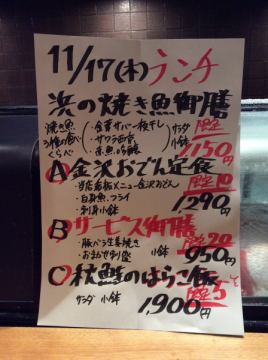 11/17(木)ランチ
浜の焼き魚御膳
焼魚 ・金華サバ一夜干し サラダ 限定
3種の食べ ・サワラ西京 小鉢
くらべ ・赤魚 1150円
A金沢おでん定食
・当店看板メニュー金沢おでん 限定10
・白身魚フライ
・刺身小鉢 1290円
Bサービス御膳
・豚バラ生姜焼き 限定20
・おまかせ小鉢 小鉢 950円
C秋鮭のはらこ飯
サラダ 小鉢 限定5
1,900円